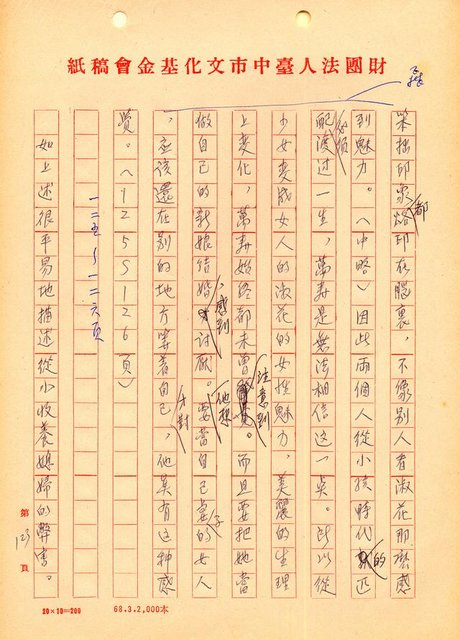 財團法人臺中市文化基金會稿紙
笨拙印象烙印在腦裏，不像別人看淑花那麼感
都
到魅力。（中略）因此兩個人從小孩時代就匹
的
配渡过一生，萬壽是無法相信这一矣。所以從
必須
少女变成女人的淑花的女性魅力，美麗的生理
上变化，萬壽始終都未曾。而且要把她當
注意到
做自己的新娘結婚才討厭。要當自己妻的女人
，感到
他想
子
，应該還在別的地方等著自己，他莫有这种感
才对
覺。（125S126頁）
一二五～一二六頁
如上述很平易地描述從小收養媳婦的弊害。
第123頁
20×10=200
68.3.2,000本